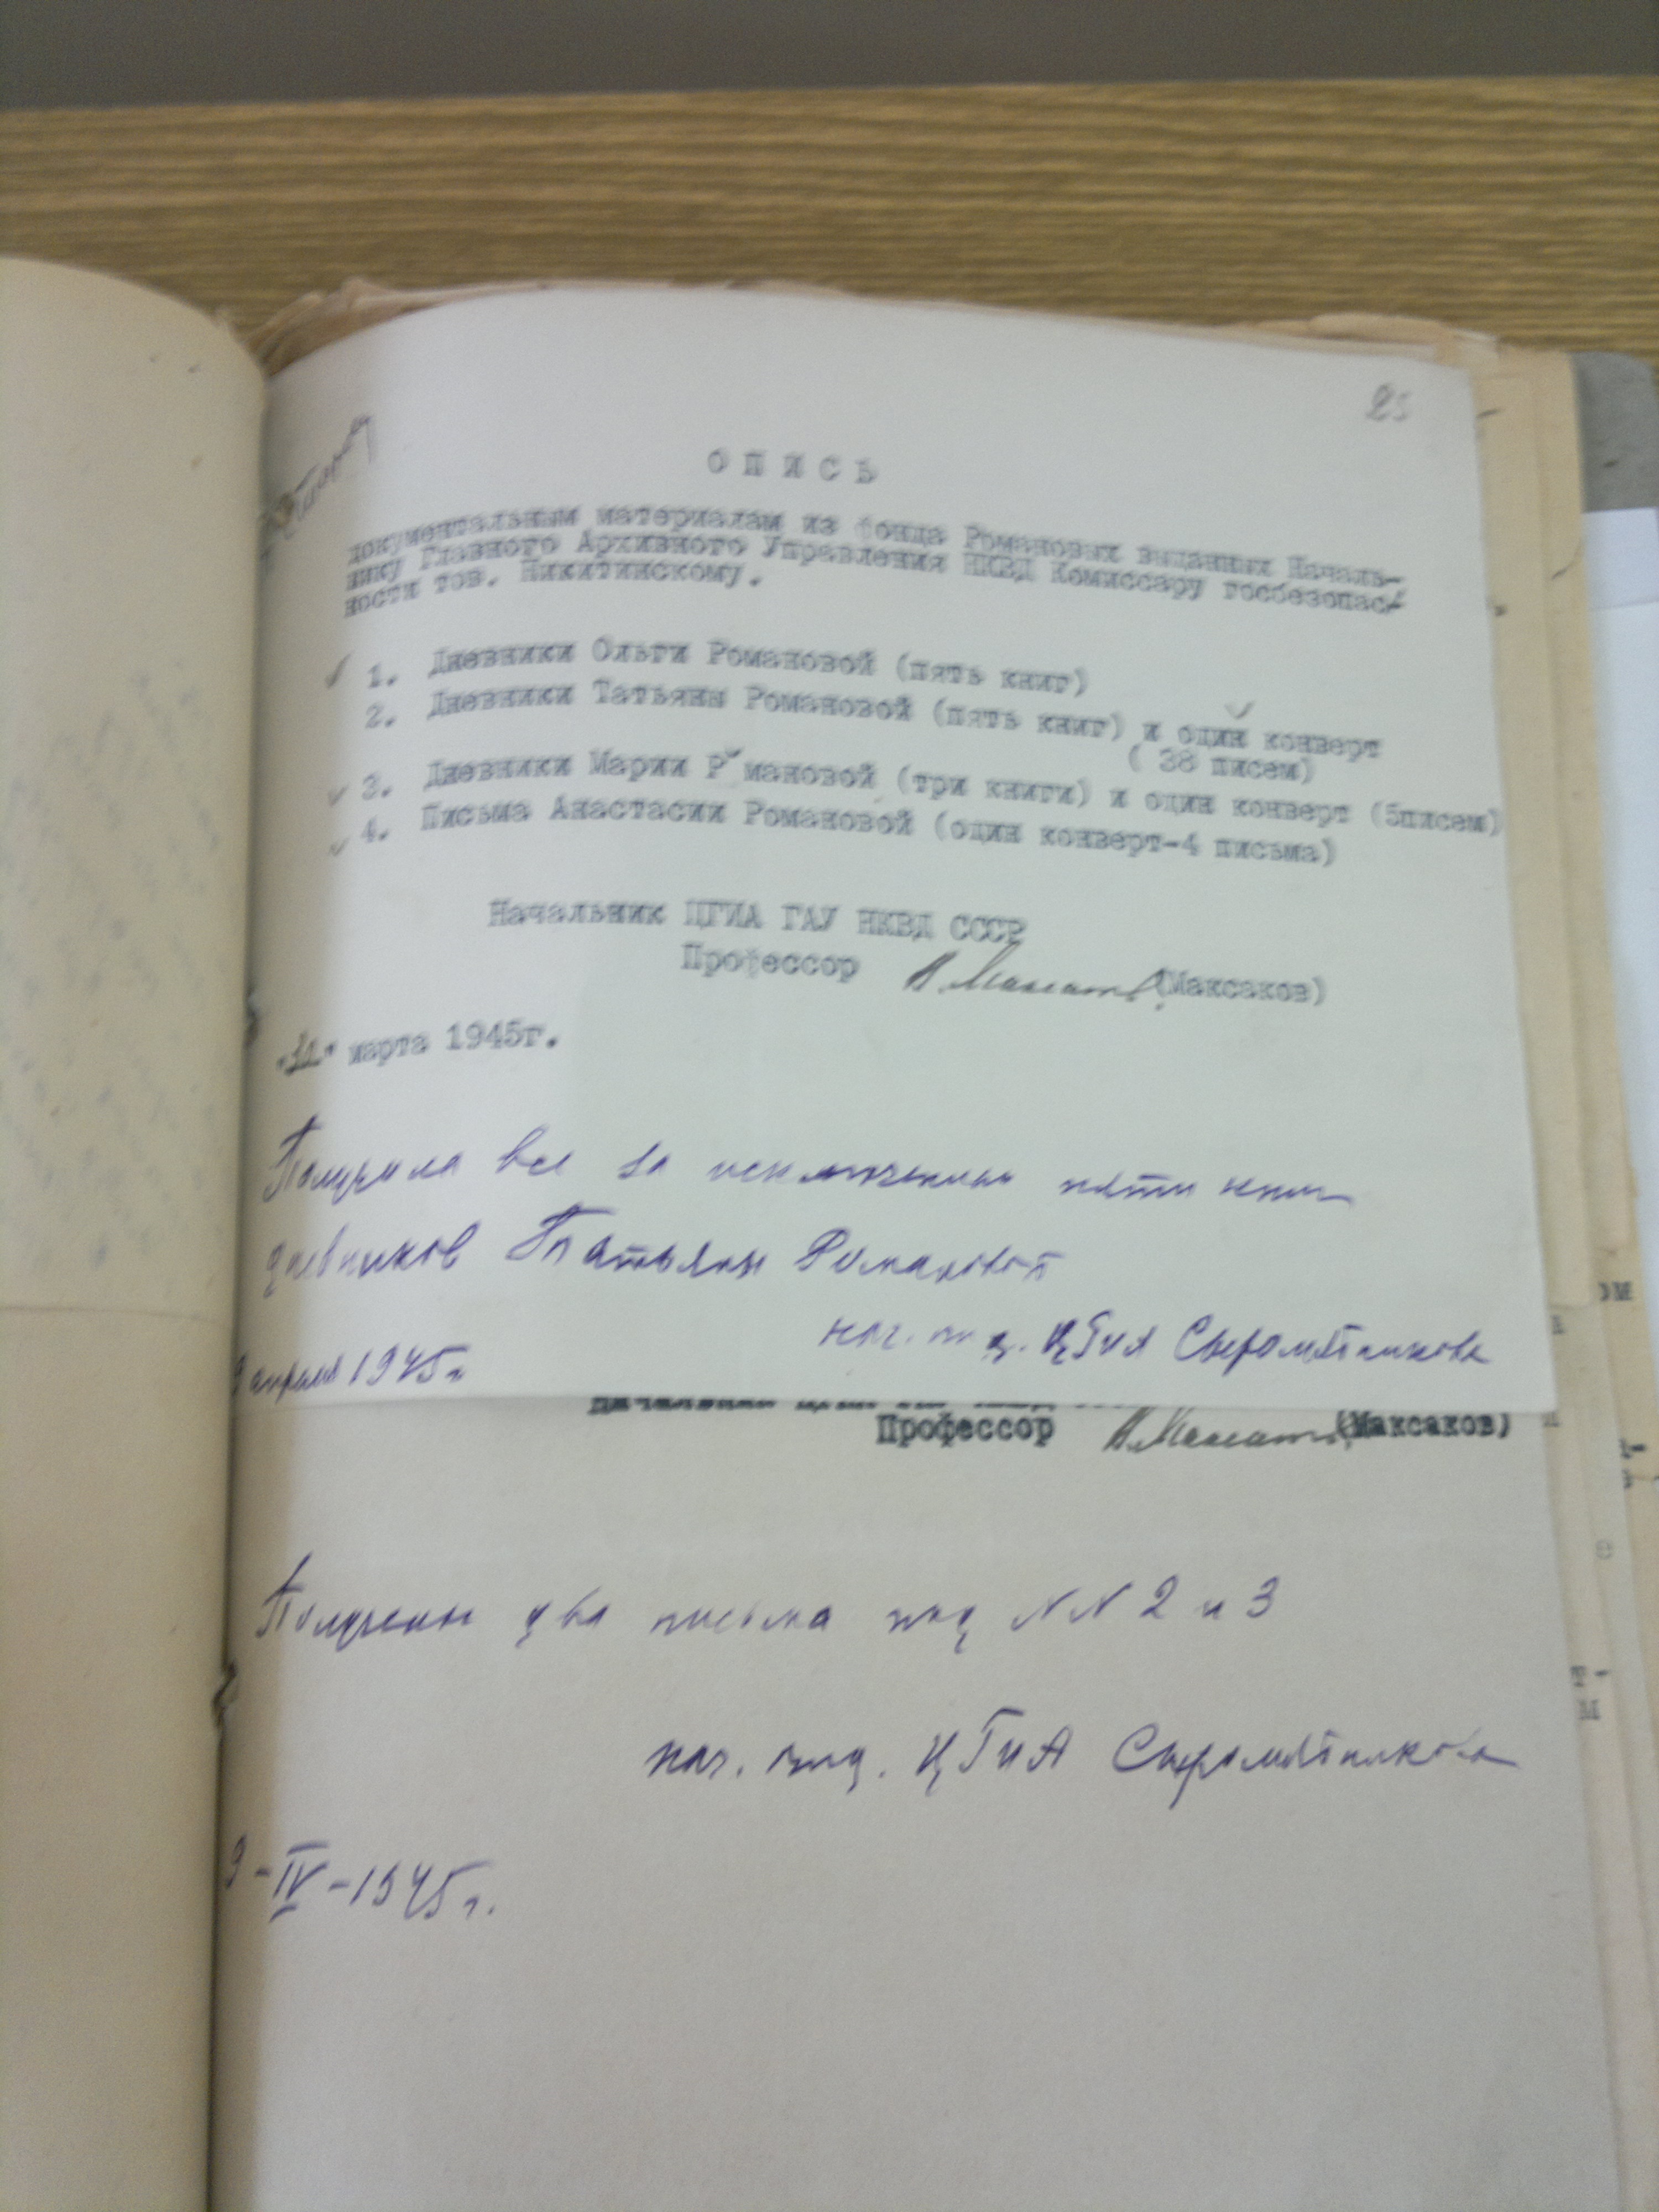 25
ОПИСЬ
документальным материалам из фонда Романовых выданных Началь-
нику Главного Архивного Управления НКВД Комиссару госбезопас-
ности тов. Никитинскому.
1. Дневники Ольги Романовой (пять книг)
2. Дневники Татьяны Романовой (пять книг) и один конверт
( 38 писем)
3. Дневники Марии Р мановой (три книги) и один конверт (5писем)
4. Письма Анастасии Романовой (один конверт-4 письма)
Начальник ЦГИА ГАУ НКВД СССР
Профессор Н. Максаков (Максаков)
марта 1945г.
Получила все за исключением пяти книг
дневников Татьяны Романовой
нач. отд. ЦГИА Сыромятникова
9 апреля 1945г
Профессор Н. Максаков (Максаков)
Получены два письма под NN 2 и 3
нач. отд. ЦГИА Сыромятникова
9-IV-1945г.